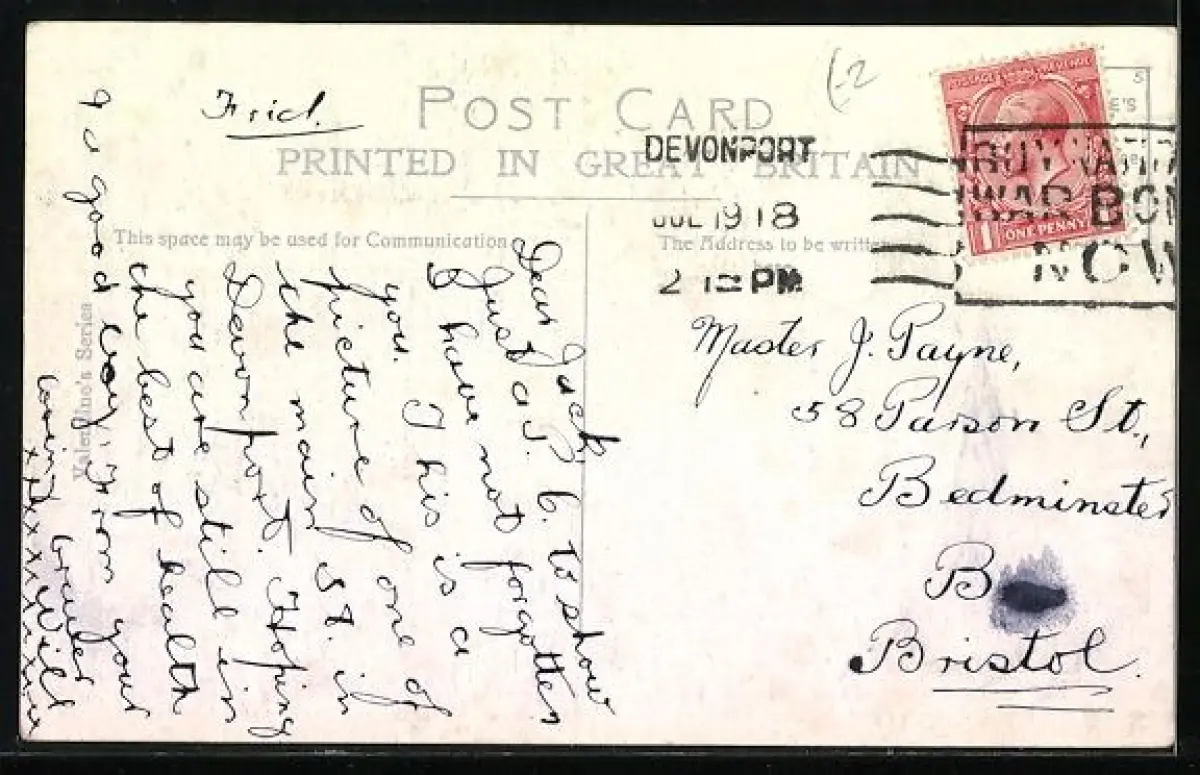 Frid.
POST CARD
PRINTED IN GREAT BRITAIN
This space may be used for Communication
The Address to be written
here
Valentine's Series
DEVONPORT
JUL 19 18
2 12 PM
BUY
WAR BON
NOW
1 ONE PENNY
Dear Jack
Just a P.C. to show
I have not forgotten
you. This is a
picture of one of
the main St. in
Devonport. Hoping
you are still in
the best of health
& a good boy, From your
loving brother
Will
Master J. Payne,
58 Parson St.,
Bedminster
B
Bristol.